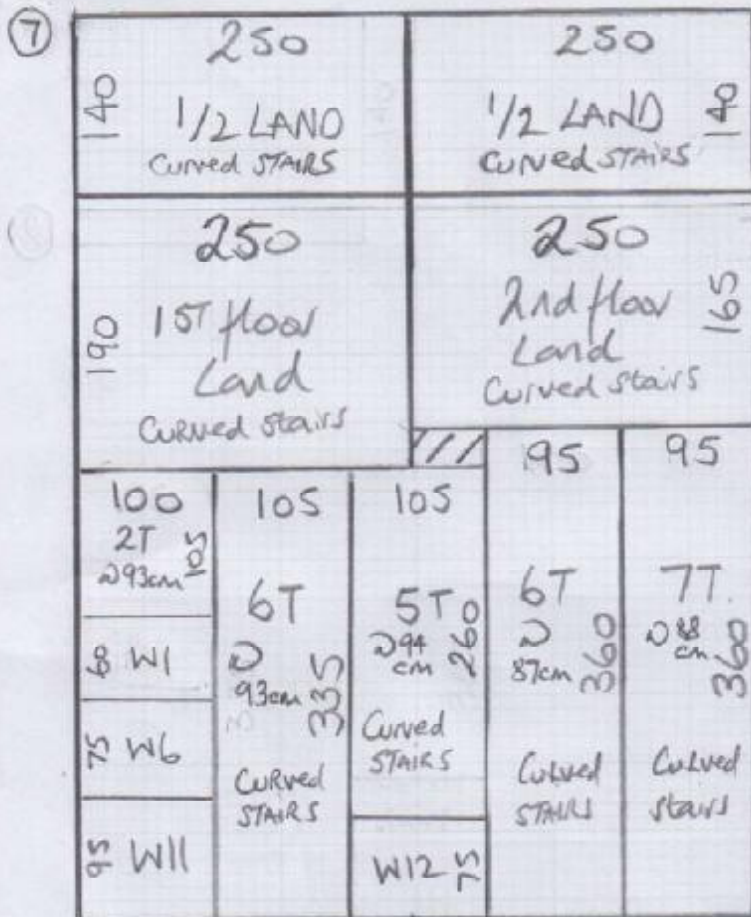 7
250
140
1/2 LAND
Curved STAIRS
250
1/2 LAND
140
Curved STAIRS
250
190
1ST floor
Land
Curved stairs
250
2nd floor
Land
165
Curved stairs
100
2T
105
93cm
60 W1
75 W6
95 W11
105
6T
93cm
335
Curved
STAIRS
105
5T
260
94
cm
Curved
STAIRS
W12 75
95
6T
87cm
360
Curved
STAIRS
95
7T
88
cm
360
Curved
stairs